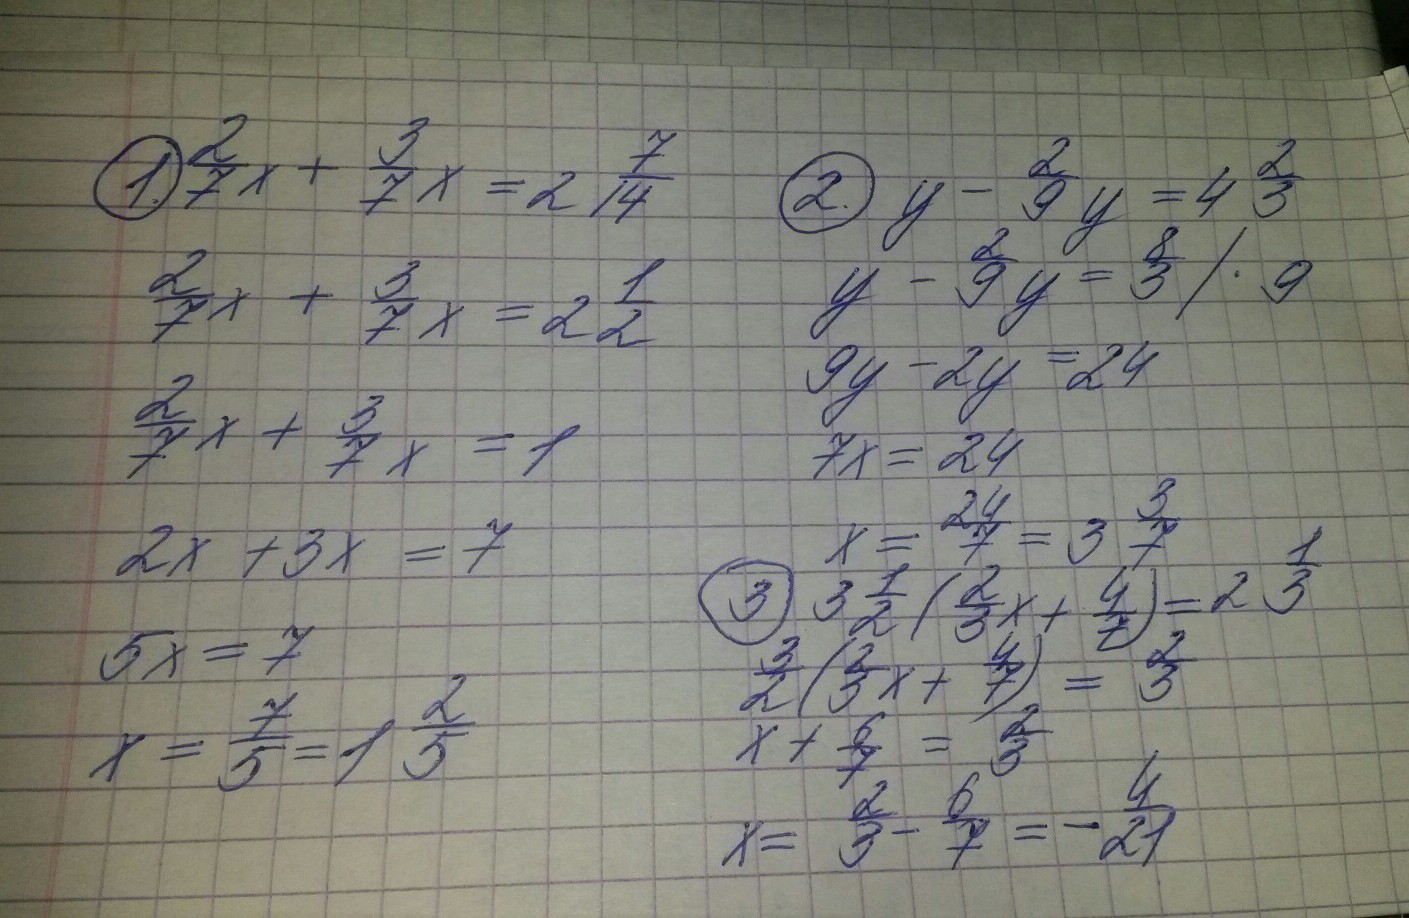 1. 2/7 x + 3/7 x = 2 7/14
2/7 x + 3/7 x = 2 1/2
2/7 x + 3/7 x = 1
2x + 3x = 7
5x = 7
x = 7/5 = 1 2/5
2. y - 2/9 y = 4 2/3
y - 2/9 y = 8/3 / · 9
9y - 2y = 24
7x = 24
x = 24/7 = 3 3/7
3 3 1/2 (2/3 x + 4/7) = 2 1/3
3/2 (2/3 x + 4/7) = 2/3
x + 6/7 = 2/3
x = 2/3 - 6/7 = - 4/21